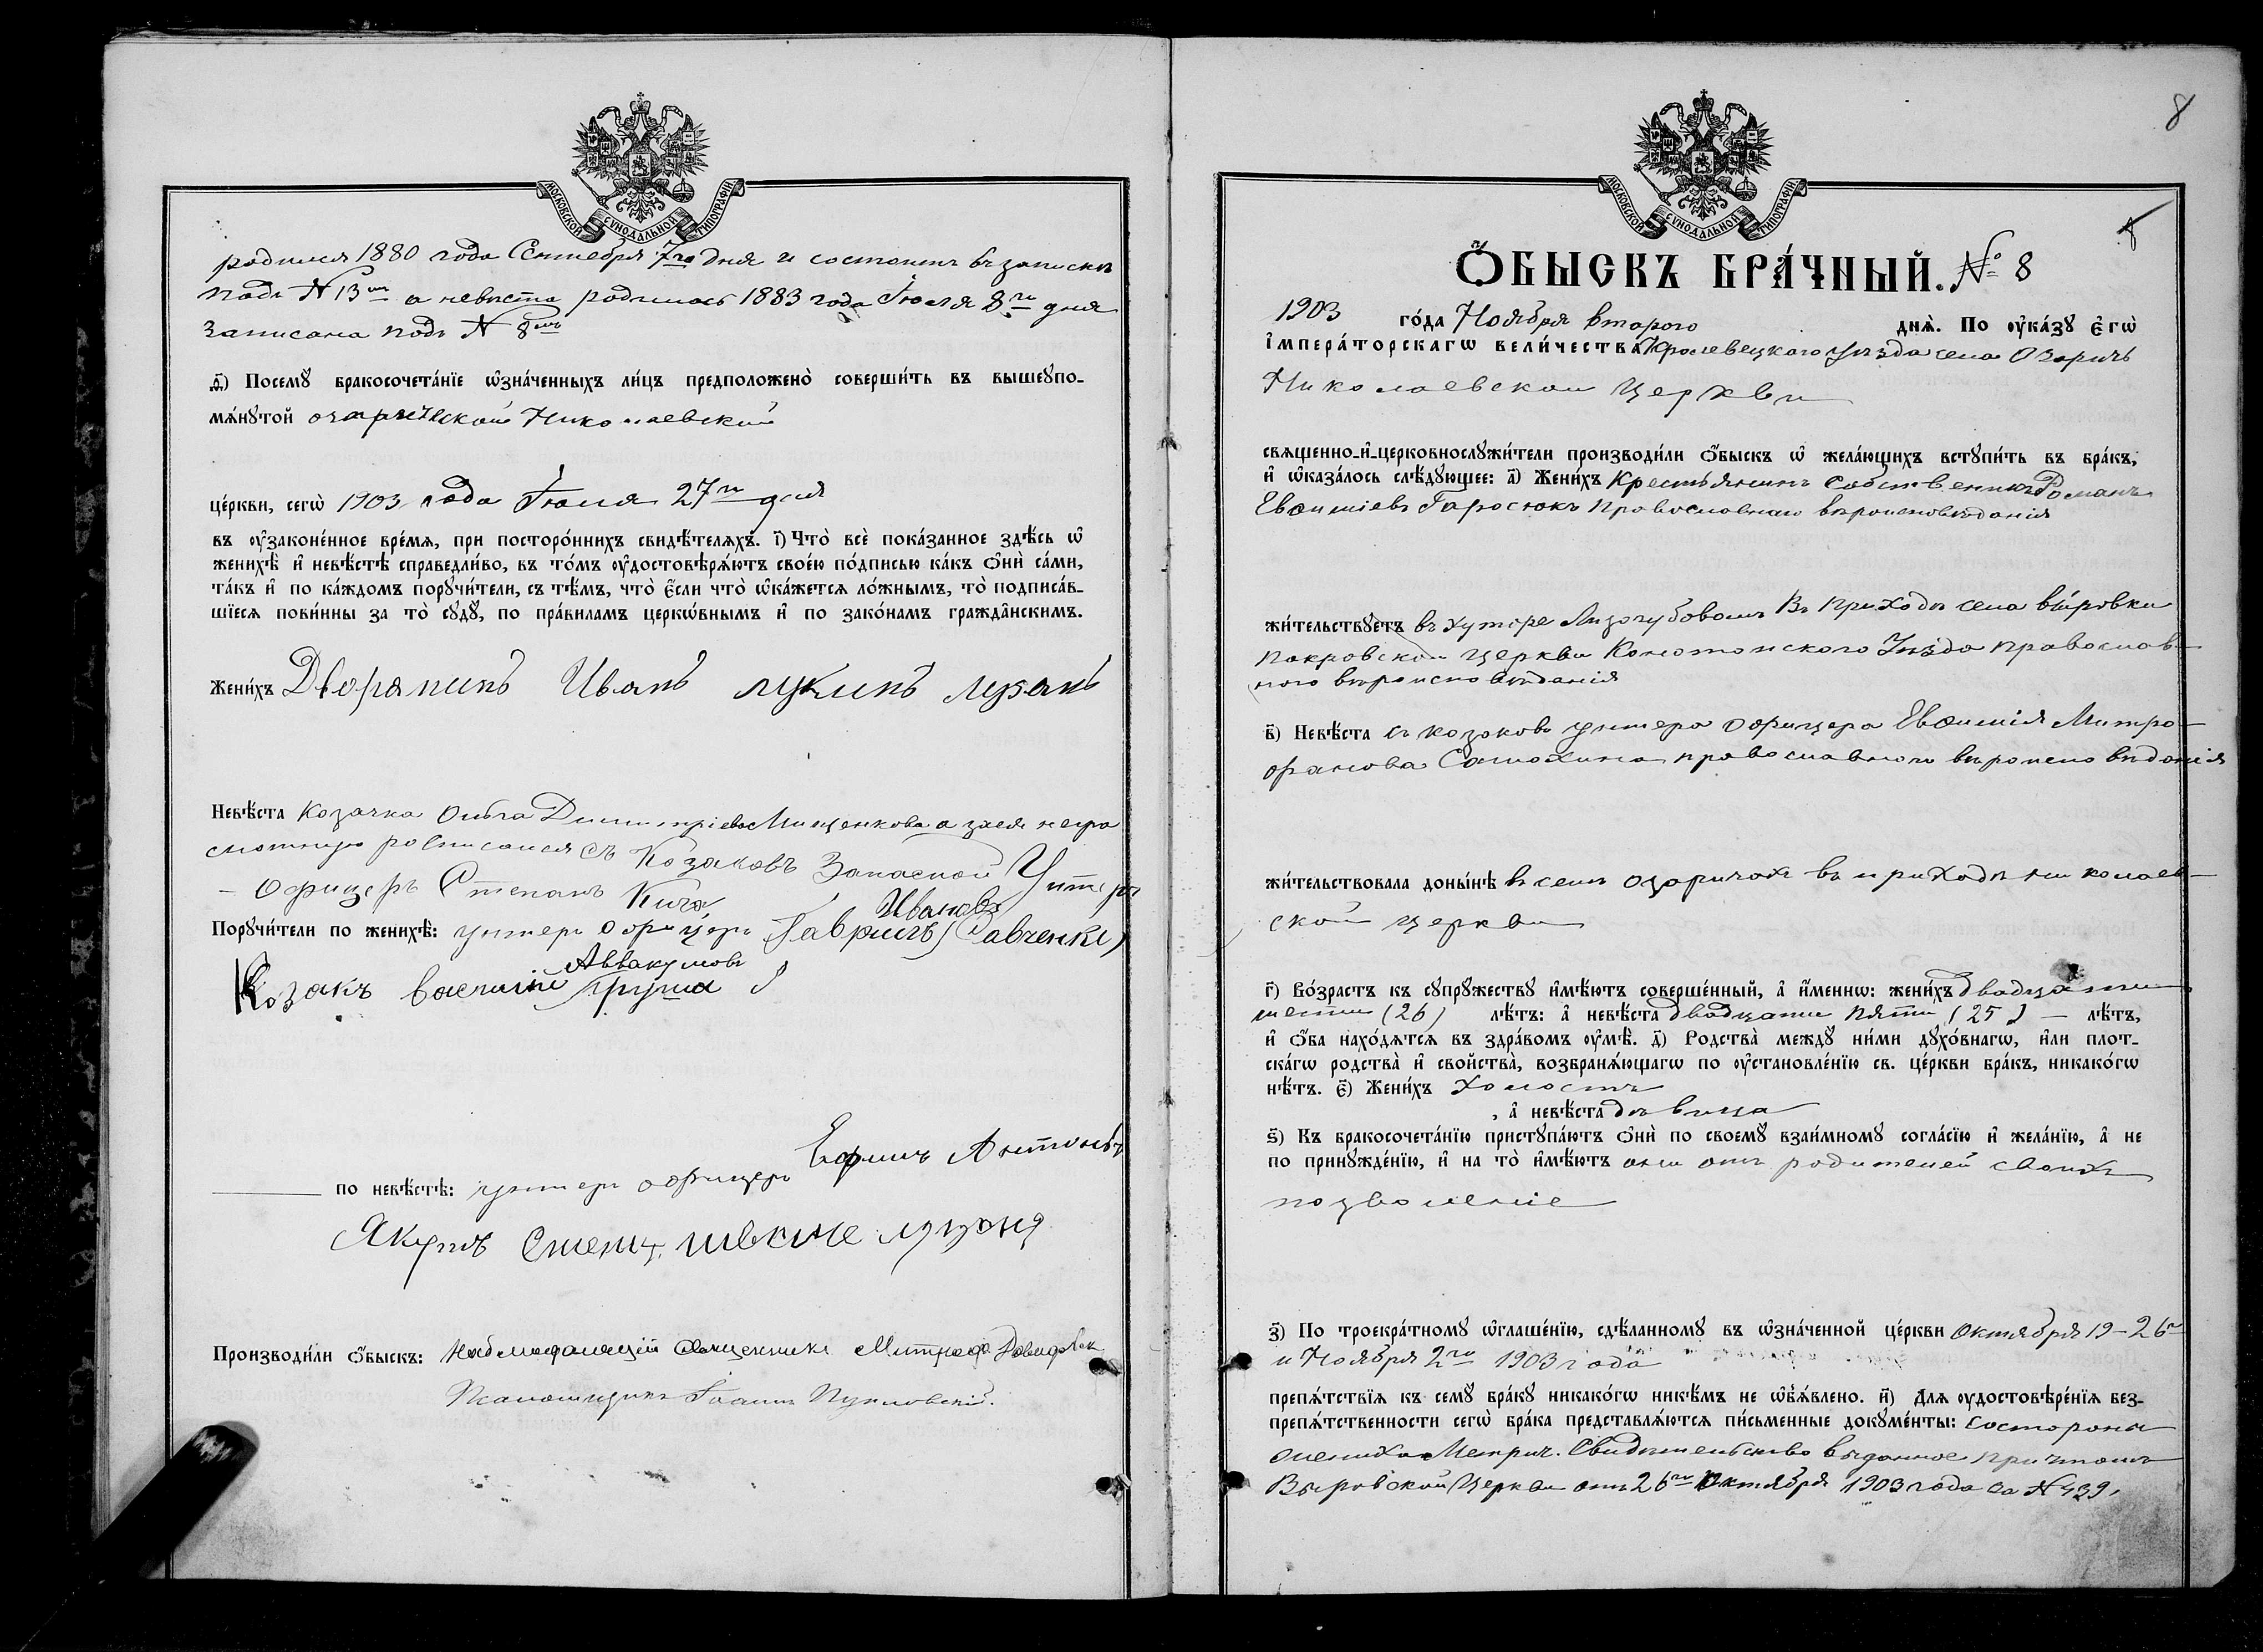 МОСКОВСКОЙ СУНОДАЛЬНОЙ ТИПОГРАФІИ.
родился 1880 года Сентября 7го дня и состоитъ въ записи
подъ № 13мъ а невеста родилась 1883 года Іюля 8го дня
Записана подъ № 8мъ
д҃) Посемꙋ бракосочета́нїе ѡ҆зна́ченныхъ ли́цъ предположено̀ соверши́ть въ вышеꙋпо-
мѧ́нꙋтой Николаевской
це́ркви, сегѡ̀ 1903 года Іюля 27го дня
въ ᲂу҆законе́нное вре́мѧ, при посторо́ннихъ свидѣ́телѧхъ. і҃) Что̀ всѐ пока́занное здѣ́сь ѡ҆
женихѣ̀ и҆ невѣ́стѣ справедли́во, въ то́мъ ᲂу҆достовѣрѧ́ютъ свое́ю по́дписью ка́къ ѻ҆нѝ са́ми,
та́къ и҆ по ка́ждомъ порꙋчи́тели, съ тѣ́мъ, что̀ є҆́сли что̀ ѡ҆ка́жетсѧ ло́жнымъ, то̀ подписа́в-
шїесѧ пови́нны за то̀ сꙋдꙋ̀, по пра́виламъ церкѡ́внымъ и҆ по зако́намъ гражда̑нскимъ.
Жени́хъ Дворянинъ Иванъ Лукинъ
Невѣ́ста Козачка Ольга Димитріева Мищенкова а за нея негра
мотную росписался съ Козаковъ Запасной Унтеръ
— Офицеръ Степанъ
Иванов
Порꙋчи́тели по женихѣ̀: унтеръ офицеръ Гавриилъ Савченко
Аввакумовъ
Козакъ Василий Груша
Ефимъ Антоновъ
по невѣ́стѣ: унтеръ офицеръ
Якуп
Производи́ли ѻ҆́быскъ: Наблюдающій Священникъ Митроф. Давидов
Псаломщикъ Іоаннъ
8
МОСКОВСКОЙ СУНОДАЛЬНОЙ ТИПОГРАФІИ.
8
Ѻ҆́БЫСКЪ БРА́ЧНЫЙ. № 8
1903 го́да Ноября второго днѧ̀. По ᲂу҆ка́зꙋ є҆гѡ̀
і҆мпера́торскагѡ вели́чества Кролевецкаго уѣзда села Озаричъ
Николаевской церкви
свѧщенно-и҆-церковнослꙋжи́тели производи́ли ѻ҆́быскъ ѡ҆ жела́ющихъ встꙋпи́ть въ бра́къ,
и҆ ѡ҆каза́лось слѣ́дꙋющее: а҃) Жени́хъ Крестьянинъ Собственикъ Романъ
Евфиміевъ Гаросюкъ Православнаго вѣроисповѣданія
жи́тельствꙋетъ въ хуторе Лизогубовомъ Въ Приходѣ села Вировки
Покровской церкви Конотопского Уѣзда православ-
ного вѣроисповѣданія
в҃) Невѣ́ста съ козаковъ унтера офицера Евфимія Митро-
фанова Самохина православного вѣроисповѣданія
жи́тельствовала донынѣ в селѣ Озаричахъ въ приходѣ николаев-
ской церкви
г҃) Во́зрастъ къ сꙋпрꙋ́жествꙋ и҆мѣ́ютъ соверше́нный, а҆ и҆́меннѡ: жени́хъ двадцати
шести (26) лѣ́тъ: а҆ невѣ́ста двадцати пяти (25) — лѣ́тъ,
и҆ ѻ҆́ба нахо́дѧтсѧ въ здра́вомъ ᲂу҆мѣ̀. д҃) Родства̀ междꙋ̀ ни́ми дꙋхо́внагѡ, и҆лѝ плот-
ска́гѡ родства̀ и҆ сво́йства̀, возбранѧ́ющагѡ по ᲂу҆становле́нїю св. це́ркви бра́къ, никако́гѡ
нѣ́тъ. є҃) Жени́хъ Холостъ
, а҆ невѣ́ста дѣвица
ѕ҃) Къ бракосочета́нїю пристꙋпа́ютъ ѻ҆нѝ по своемꙋ̀ взаи́мномꙋ согла́сїю и҆ жела́нїю, а҆ не
по принꙋжде́нїю, и҆ на то̀ и҆мѣ́ютъ они отъ родителей своихъ
позволеніе
з҃) По троекра́тномꙋ ѡ҆глаше́нїю, сдѣ́ланномꙋ въ ѡ҆зна́ченной це́ркви октября 19–26го
и Ноября 2го 1903 года
препѧ́тствїѧ къ семꙋ̀ бра́кꙋ никако́гѡ никѣ́мъ не ѡ҆б̾ѧ́влено. и҃) Длѧ ᲂу҆достовѣре́нїѧ без-
препѧ́тственности сегѡ̀ бра́ка представлѧ́ютсѧ пи́сьменные докꙋме́нты: состороны
жениха Метрич. Свидѣтельство выданное причтомъ
Вировской Церкви отъ 26го Октября 1903 года за № 439,